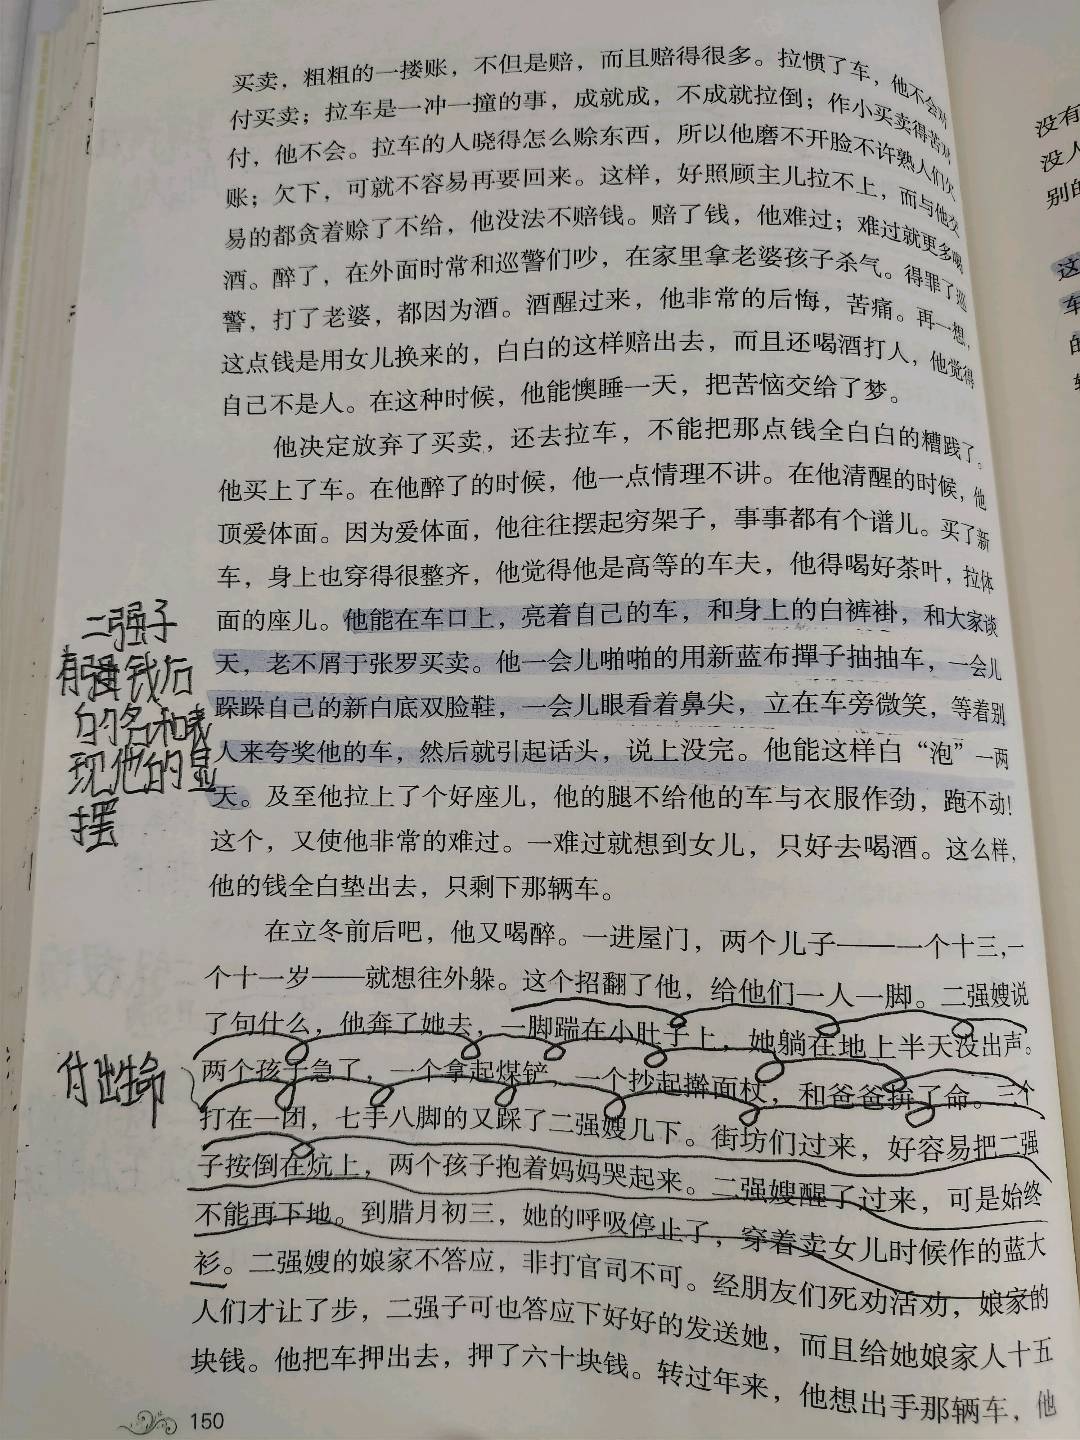 买卖，粗粗的一搂账，不但是赔，而且赔得很多。拉惯了车，他不会对
付买卖；拉车是一冲一撞的事，成就成，不成就拉倒；作小买卖得苦对
付，他不会。拉车的人晓得怎么赊东西，所以他磨不开脸不许熟人们欠
账；欠下，可就不容易再要回来。这样，好照顾主儿拉不上，而与他交
易的都贪着赊了不给，他没法不赔钱。赔了钱，他难过；难过就更多喝
酒。醉了，在外面时常和巡警们吵，在家里拿老婆孩子杀气。得罪了巡
警，打了老婆，都因为酒。酒醒过来，他非常的后悔，苦痛。再一想，
这点钱是用女儿换来的，白白的这样赔出去，而且还喝酒打人，他觉得
自己不是人。在这种时候，他能懊睡一天，把苦恼交给了梦。
他决定放弃了买卖，还去拉车，不能把那点钱全白白的糟践了。
他买上了车。在他醉了的时候，他一点情理不讲。在他清醒的时候，他
顶爱体面。因为爱体面，他往往摆起穷架子，事事都有个谱儿。买了新
车，身上也穿得很整齐，他觉得他是高等的车夫，他得喝好茶叶，拉体
面的座儿。他能在车口上，亮着自己的车，和身上的白裤褂，和大家谈
天，老不屑于张罗买卖。他一会儿啪啪的用新蓝布撣子抽抽车，一会儿
跺跺自己的新白底双脸鞋，一会儿眼看着鼻尖，立在车旁微笑，等着别
人来夸奖他的车，然后就引起话头，说上没完。他能这样白“泡”一两
天。及至他拉上了个好座儿，他的腿不给他的车与衣服作劲，跑不动！
这个，又使他非常的难过。一难过就想到女儿，只好去喝酒。这么样，
他的钱全白垫出去，只剩下那辆车。
在立冬前后吧，他又喝醉。一进屋门，两个儿子——一个十三，一
个十一岁——就想往外躲。这个招翻了他，给他们一人一脚。二强嫂说
了句什么，他奔了她去，一脚踹在小肚子上，她躺在地上半天没出声。
两个孩子急了，一个拿起煤铲，一个抄起擀面杖，和爸爸拚了命。三个
打在一团，七手八脚的又踩了二强嫂几下。街坊们过来，好容易把二强
子按倒在炕上，两个孩子抱着妈妈哭起来。二强嫂醒了过来，可是始终
不能再下地。到腊月初三，她的呼吸停止了，穿着卖女儿时候作的蓝大
衫。二强嫂的娘家不答应，非打官司不可。经朋友们死劝活劝，娘家的
人们才让了步，二强子可也答应下好好的发送她，而且给她娘家人十五
块钱。他把车押出去，押了六十块钱。转过年来，他想出手那辆车，他
150
二强子
有
钱后
的名和表
现他的显
摆
付出生命
没有
没人
别的
这
车
的